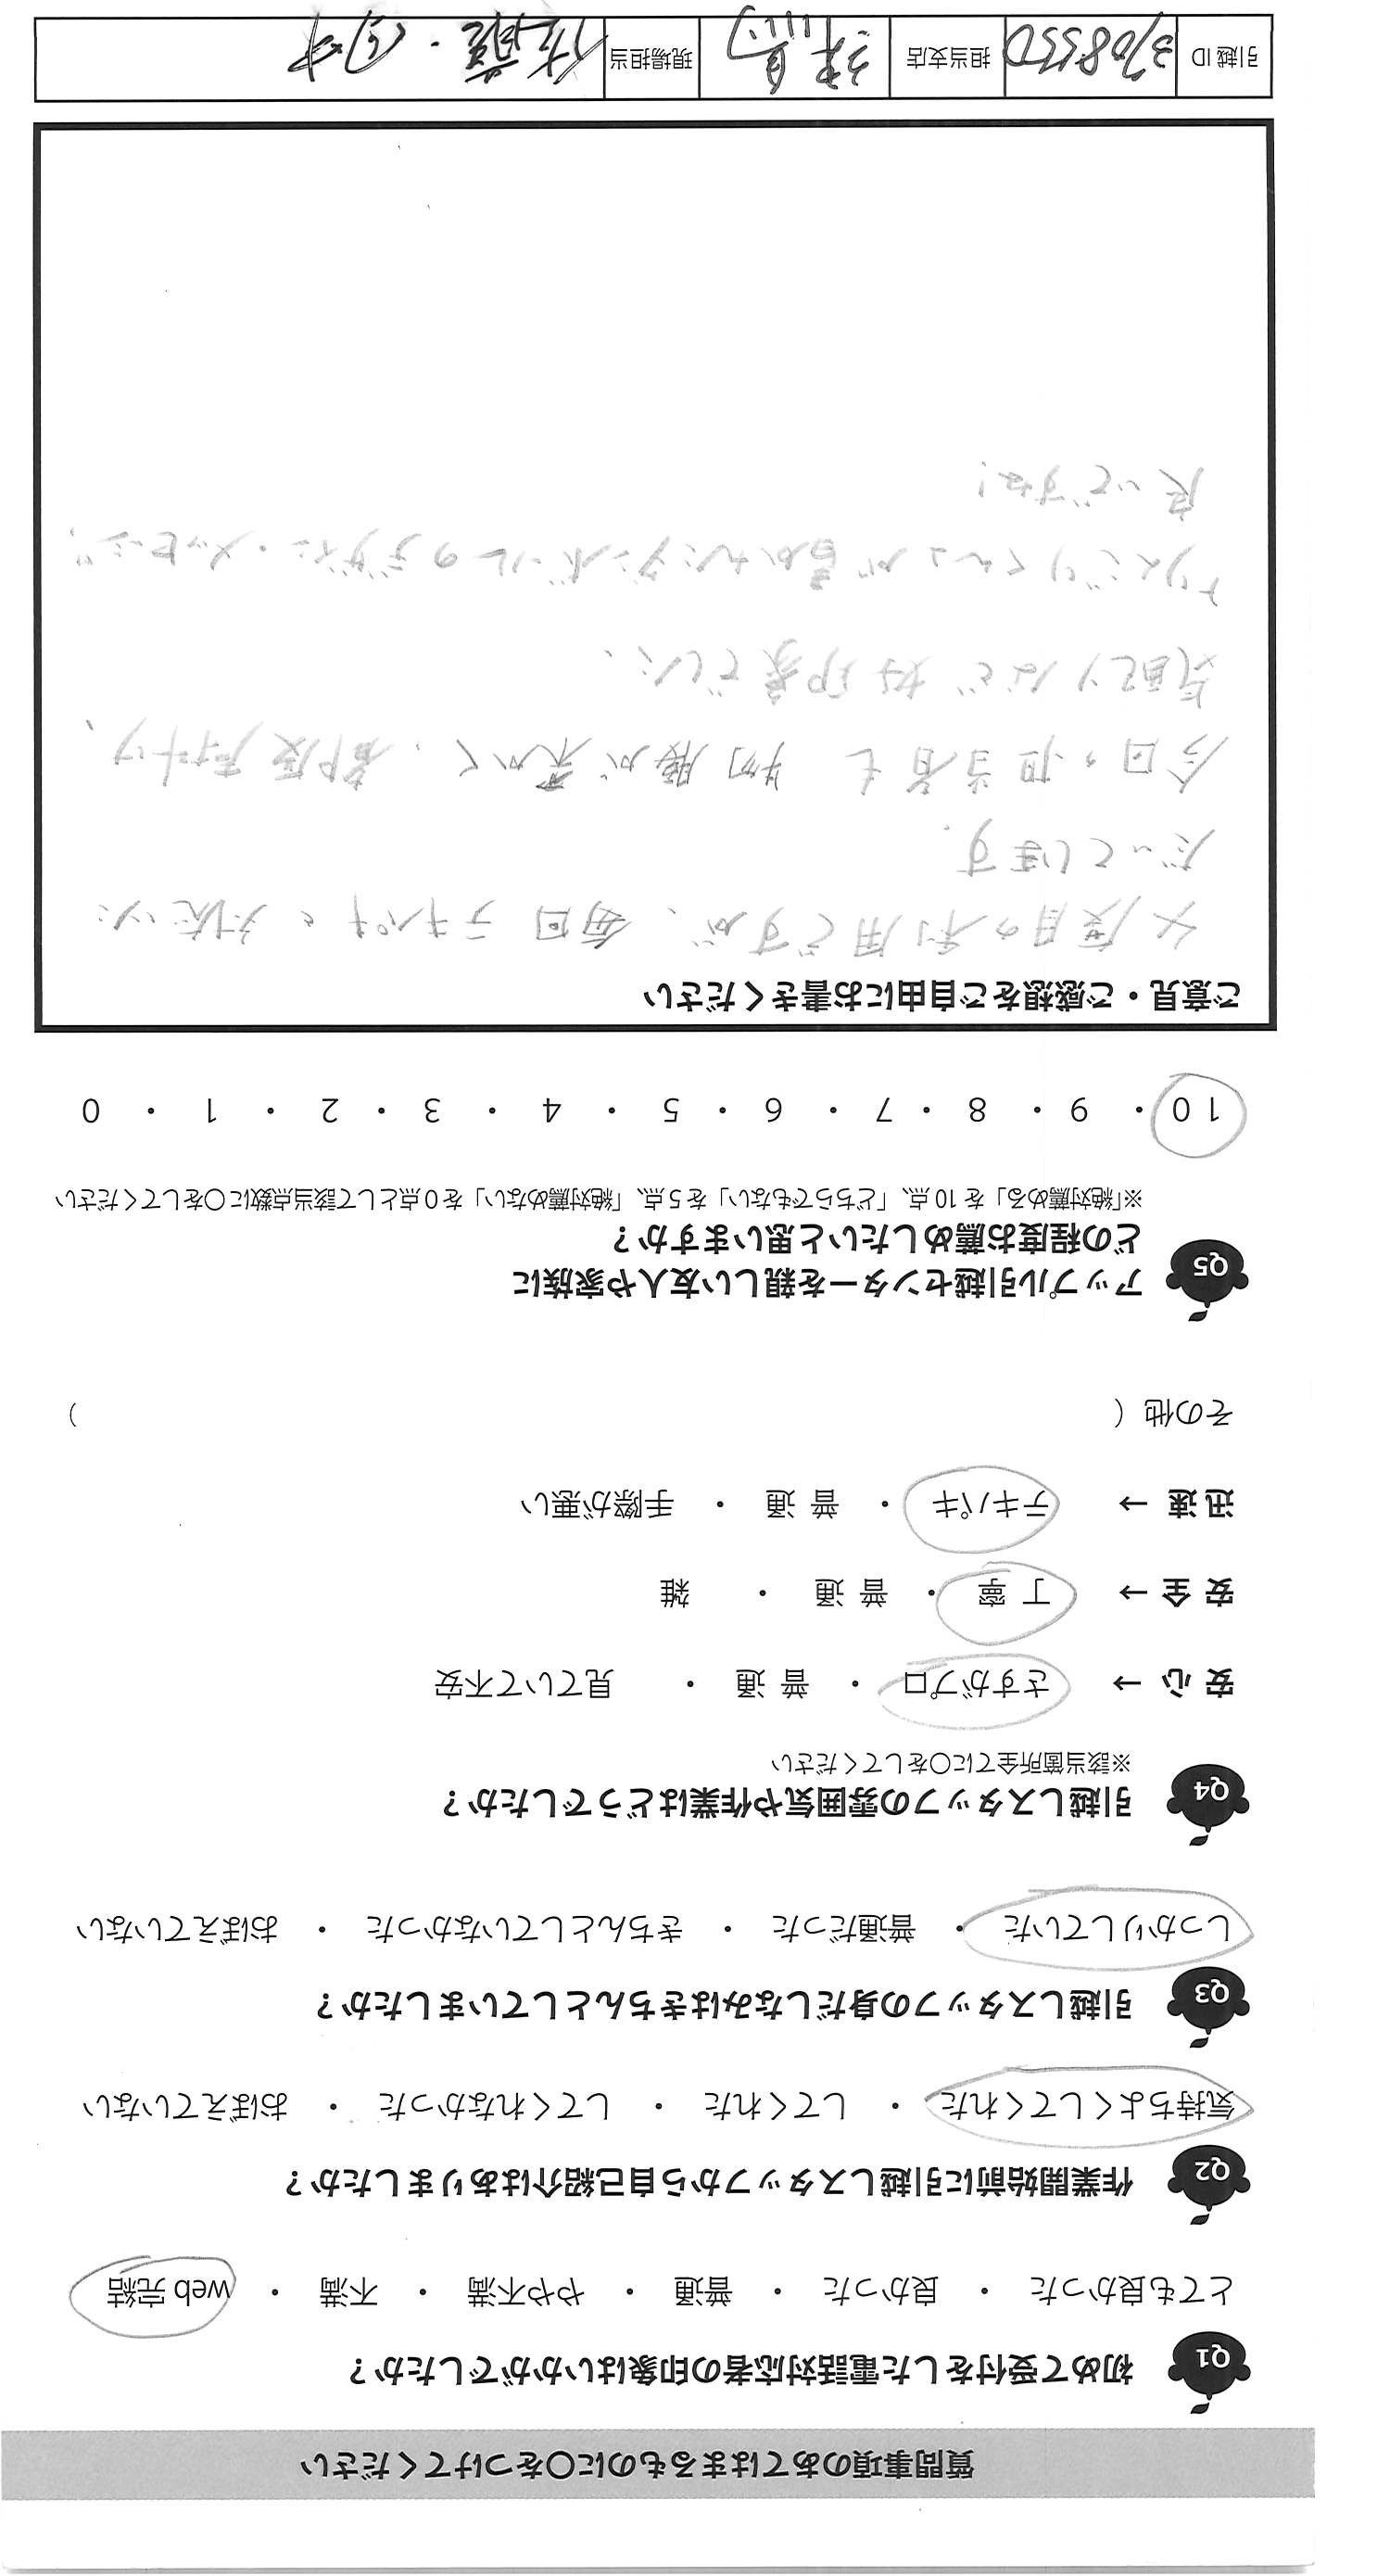 質問事項のあてはまるものに〇をつけてください
Q1 初めて受付をした電話対応者の印象はいかがでしたか？
とても良かった ・ 良かった ・ 普通 ・ やや不満 ・ 不満 ・ web 完結
Q2 作業開始前に引越しスタッフから自己紹介はありましたか？
気持ちよくしてくれた ・ してくれた ・ してくれなかった ・ おぼえていない
Q3 引越しスタッフの身だしなみはきちんとしていましたか？
しっかりしていた ・ 普通だった ・ きちんとしていなかった ・ おぼえていない
Q4 引越しスタッフの雰囲気や作業はどうでしたか？
※該当箇所全てに〇をしてください
安 心 → さすがプロ ・ 普 通 ・ 見ていて不安
安 全 → 丁 寧 ・ 普 通 ・ 雑
迅 速 → テキパキ ・ 普 通 ・ 手際が悪い
その他（ ）
Q5 アップル引越センターを親しい友人や家族に
どの程度お薦めしたいと思いますか？
※「絶対薦める」を 10 点、「どちらでもない」を 5 点、「絶対薦めない」を 0 点として該当点数に〇をしてください
10 ・ 9 ・ 8 ・ 7 ・ 6 ・ 5 ・ 4 ・ 3 ・ 2 ・ 1 ・ 0
ご意見・ご感想をご自由にお書きください
度目の利用ですが、毎回テキパキと対応いた
だいてします。
今回の担当者も 物腰が柔かく、都度
気配りなど好印象でした、
「りんごりくん」が書かれたダンボールのデザイン・メッセージ、
良いですね!
引越 ID 3708550 担当支店 現場担当 佐藤・